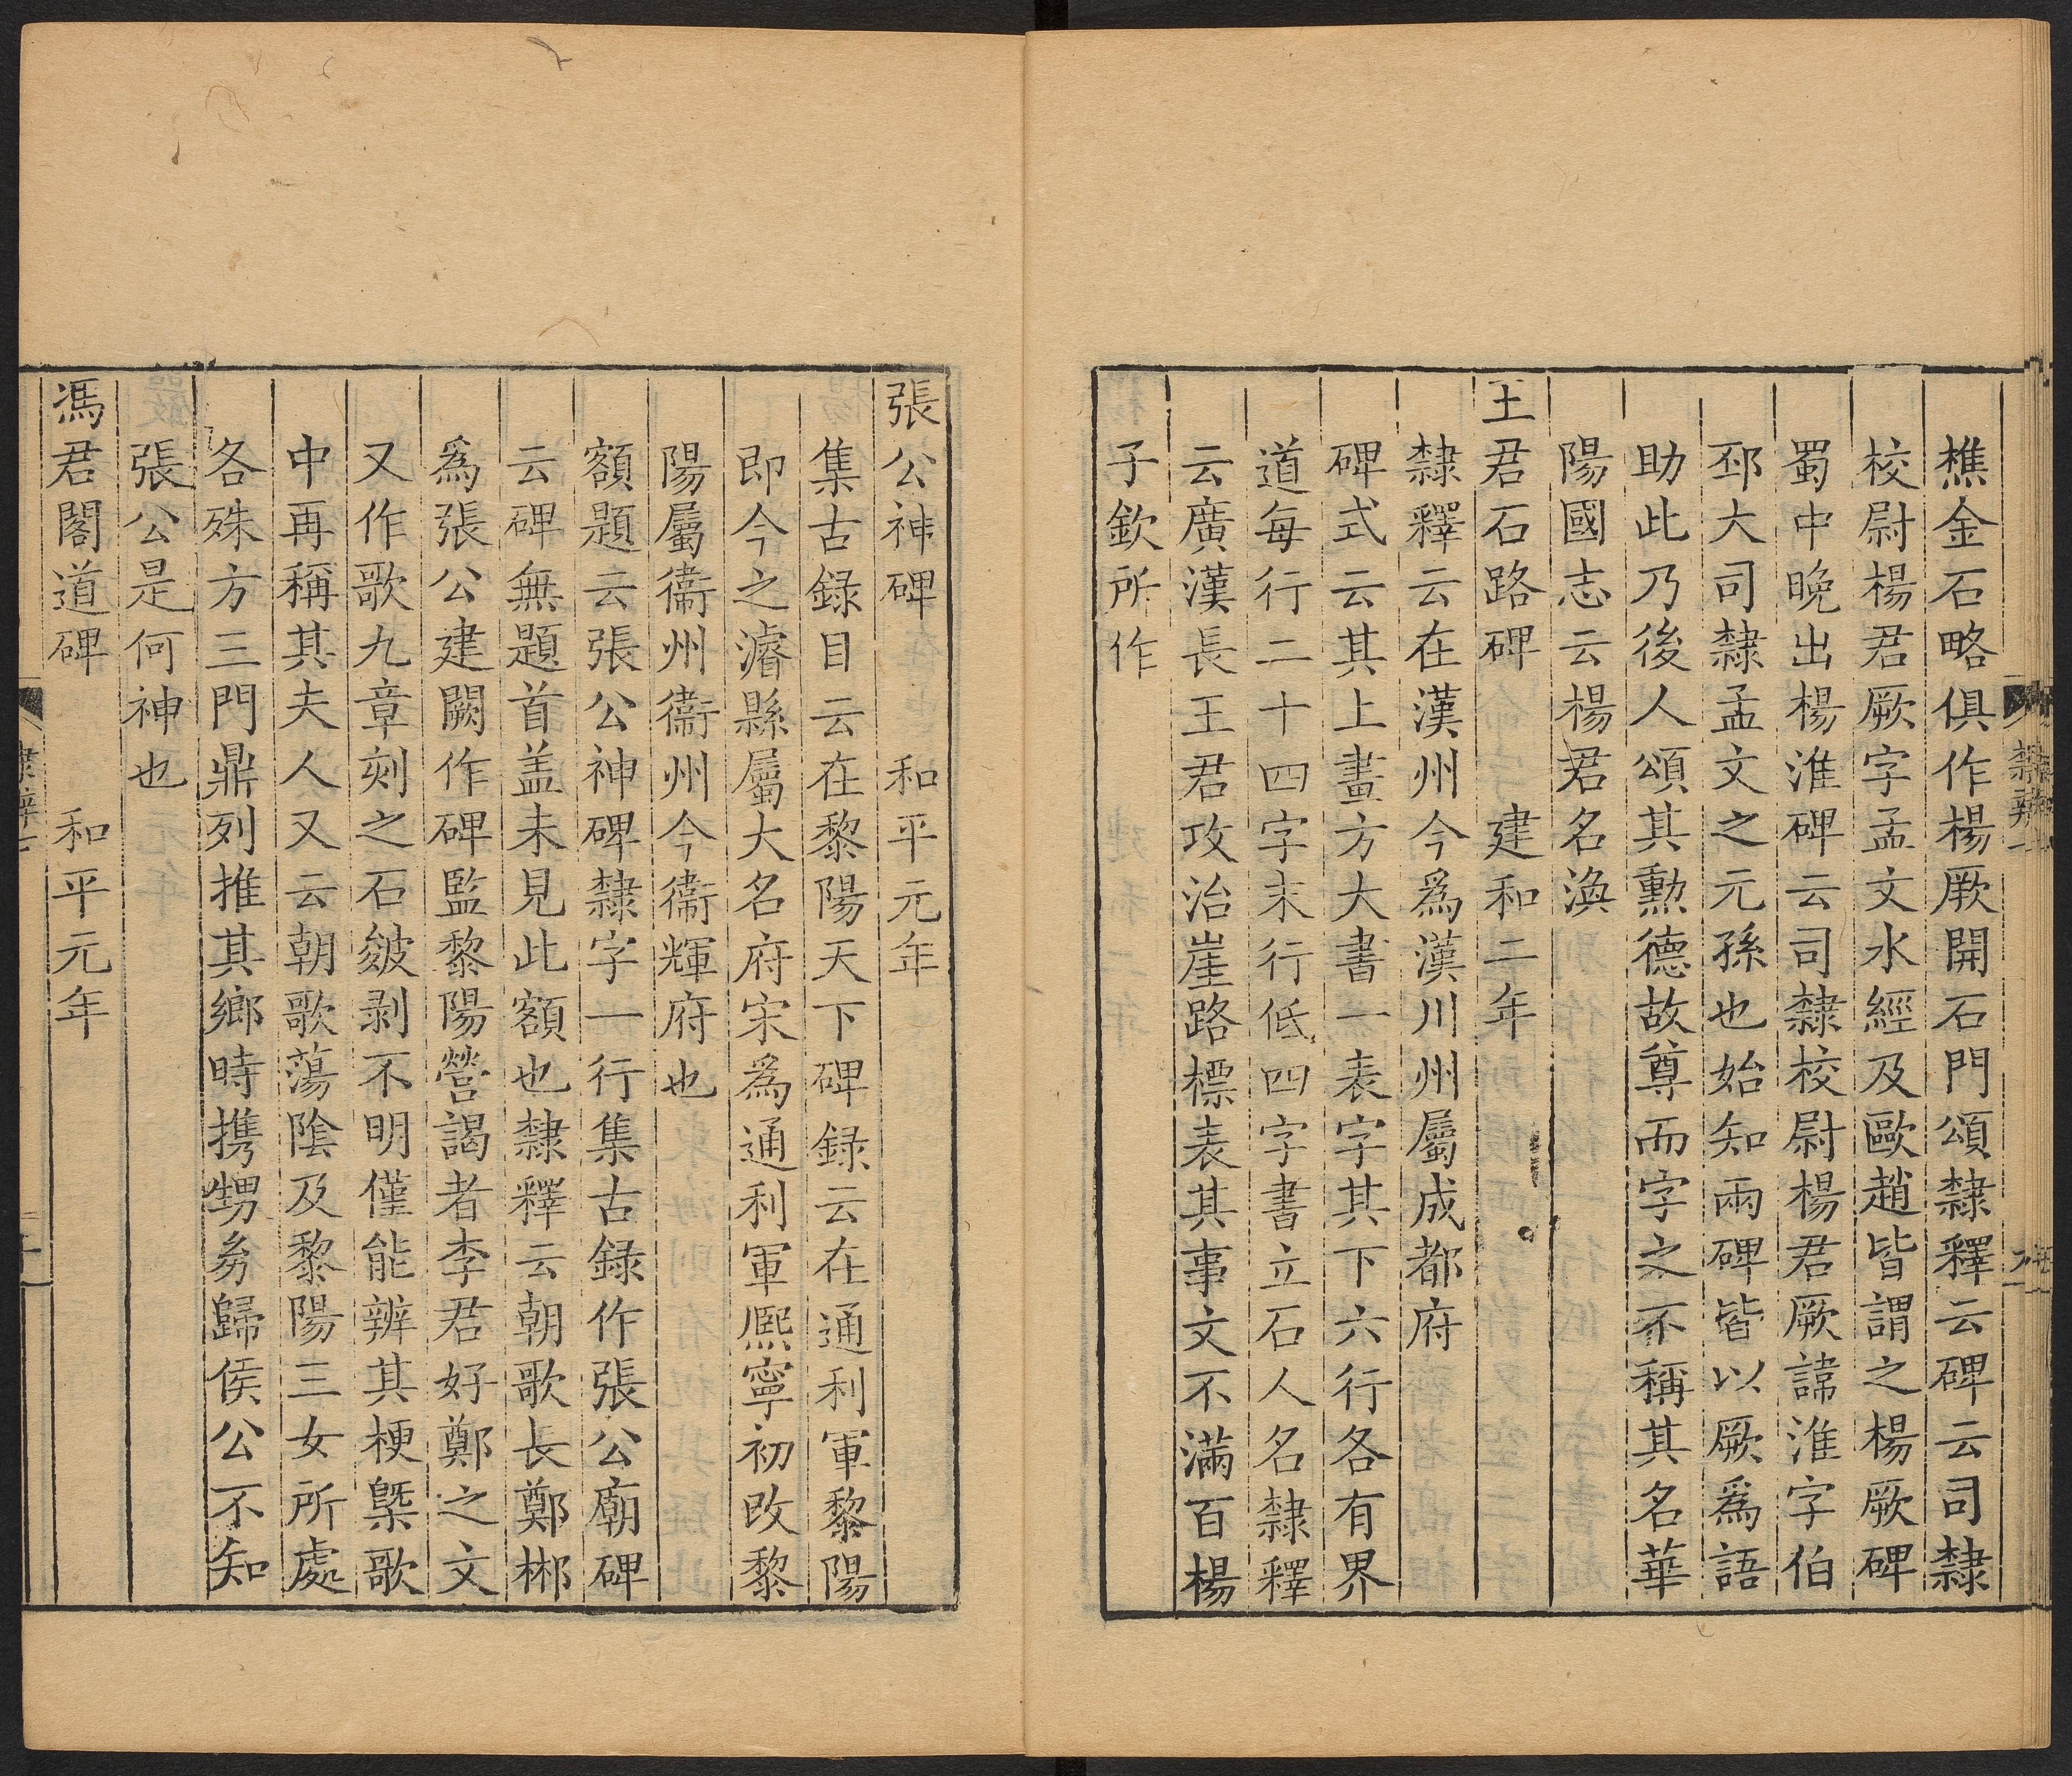 樵金石略俱作楊厥開石門頌隸釋云碑云司隸
校尉楊君厥字孟文水經及歐趙皆謂之楊厥碑
蜀中晚出楊淮碑云司隸校尉楊君厥諱淮字伯
邳大司隸孟文之元孫也始知兩碑皆以厥為語
助此乃後人頌其勲德故尊而字之不稱其名華
陽國志云楊君名渙
王君石路碑 建和二年
隸釋云在漢州今為漢川州屬成都府
碑式云其上畫方大書一表字其下六行各有界
道每行二十四字末行低四字書立石人名隸釋
云廣漢長王君攻治崖路標表其事文不滿百楊
子欽所作
張公神碑 和平元年
集古録目云在黎陽天下碑録云在通利軍黎陽
即今之濬縣屬大名府宋為通利軍熙寧初改黎
陽屬衞州衞州今衞輝府也
額題云張公神碑隸字一行集古録作張公廟碑
云碑無題首盖未見此額也隸釋云朝歌長鄭郴
為張公建闕作碑監黎陽營謁者李君好鄭之文
又作歌九章刻之石皴剥不明僅能辨其梗槩歌
中再稱其夫人又云朝歌蕩陰及黎陽三女所處
各殊方三門鼎列推其鄉時携甥㓜歸侯公不知
張公是何神也
馮君閣道碑 和平元年